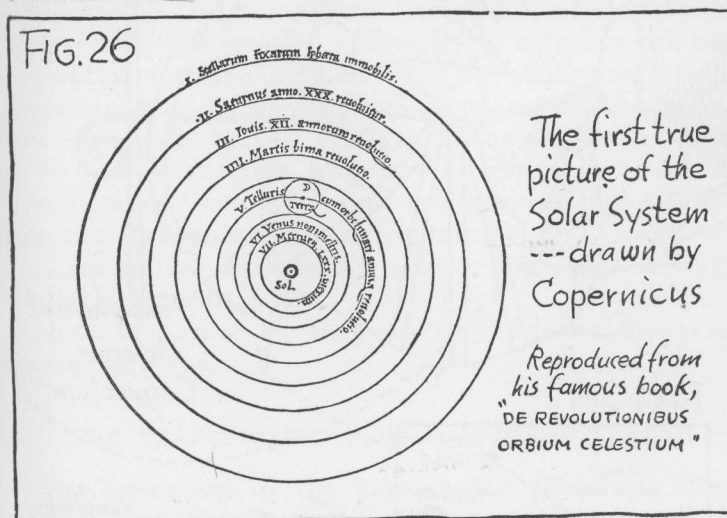 FIG. 26
I. Stellarum Fixarum Sphæra immobilis.
II. Saturnus anno. XXX. revoluitur.
III. Iovis. XII. annorum revolutio.
IIII. Martis bima revolutio.
V. Telluris
Terra
cum orbe lunari annua revolutio.
VI. Venus nonimestris.
VII. Mercurii LXXX. dierum.
Sol.
The first true
picture of the
Solar System
--- drawn by
Copernicus
Reproduced from
his famous book,
"DE REVOLUTIONIBUS
ORBIUM CELESTIUM"